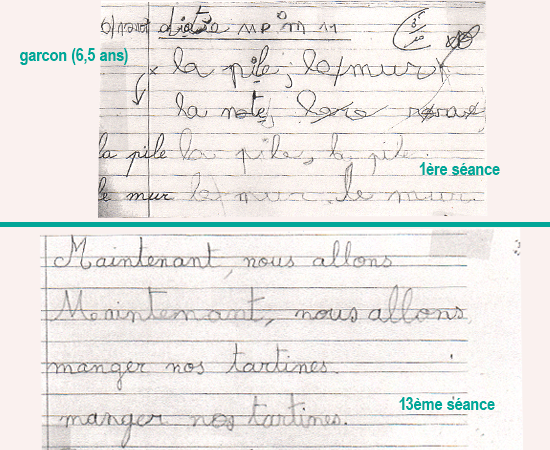 dictée
garcon (6,5 ans)
la pile, le mur
la note,
la pile la pile, la pile
1ère séance
le mur le mur. le mur.
Maintenant, nous allons
Maintenant, nous allons
manger nos tartines.
13ème séance
manger nos tartines.